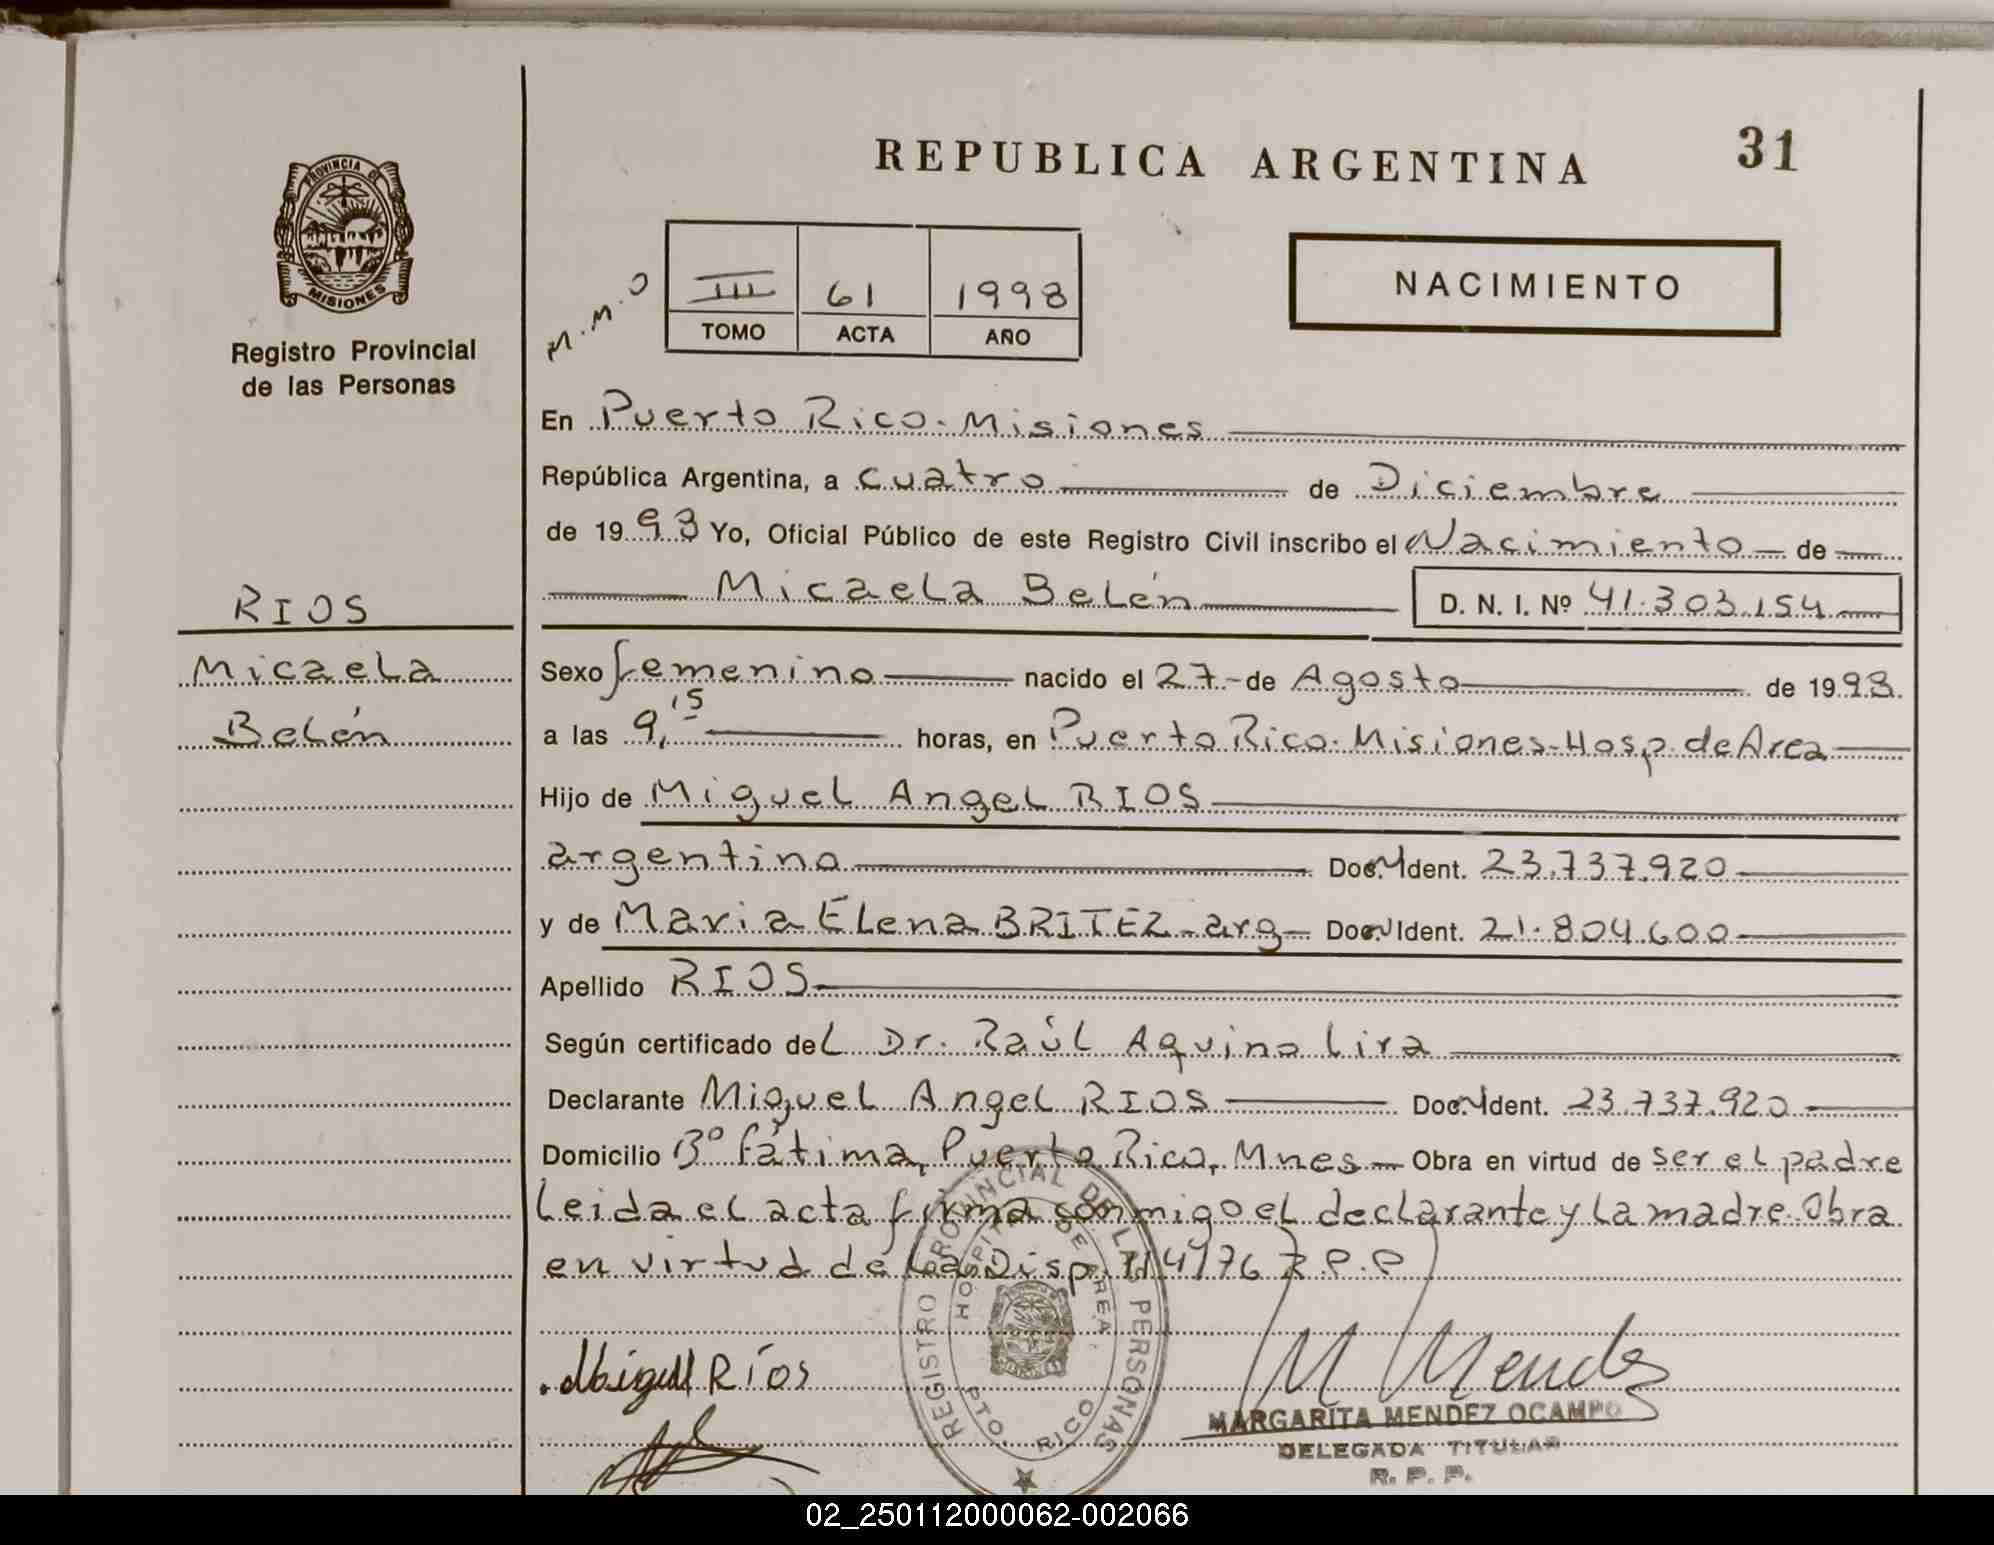 REPUBLICA ARGENTINA 31
PROVINCIA DE
MISIONES
Registro Provincial
de las Personas
M.M.O
III 61 1998
TOMO ACTA AÑO
NACIMIENTO
En Puerto Rico. Misiones
República Argentina, a cuatro de Diciembre
de 1998 Yo, Oficial Público de este Registro Civil inscribo el Nacimiento de
Micaela Belén D. N. I. Nº 41.303.154
RIOS
Micaela
Belén
Sexo femenino nacido el 27 de Agosto de 1998.
a las 9,15 horas, en Puerto Rico. Misiones-Hosp. de Area
Hijo de Miguel Angel RIOS
argentino Doc. Ident. 23.737.920
y de Maria Elena BRITEZ - arg Doc. Ident. 21.804.600
Apellido RIOS
Según certificado del Dr. Raúl Aquino Lira
Declarante Miguel Angel RIOS Doc. Ident. 23.737.920
Domicilio Bº Fátima, Puerto Rico, Mnes Obra en virtud de ser el padre
Leida el acta firma conmigo el declarante y la madre. Obra
en virtud de la Disp. 114/76 R.P.P
REGISTRO PROVINCIAL DE LAS PERSONAS
HOSPITAL DE AREA
PTO. RICO
Ríos
M Mendez
MARGARITA MENDEZ OCAMPO
DELEGADA TITULAR
R. P. P.
02_250112000062-002066